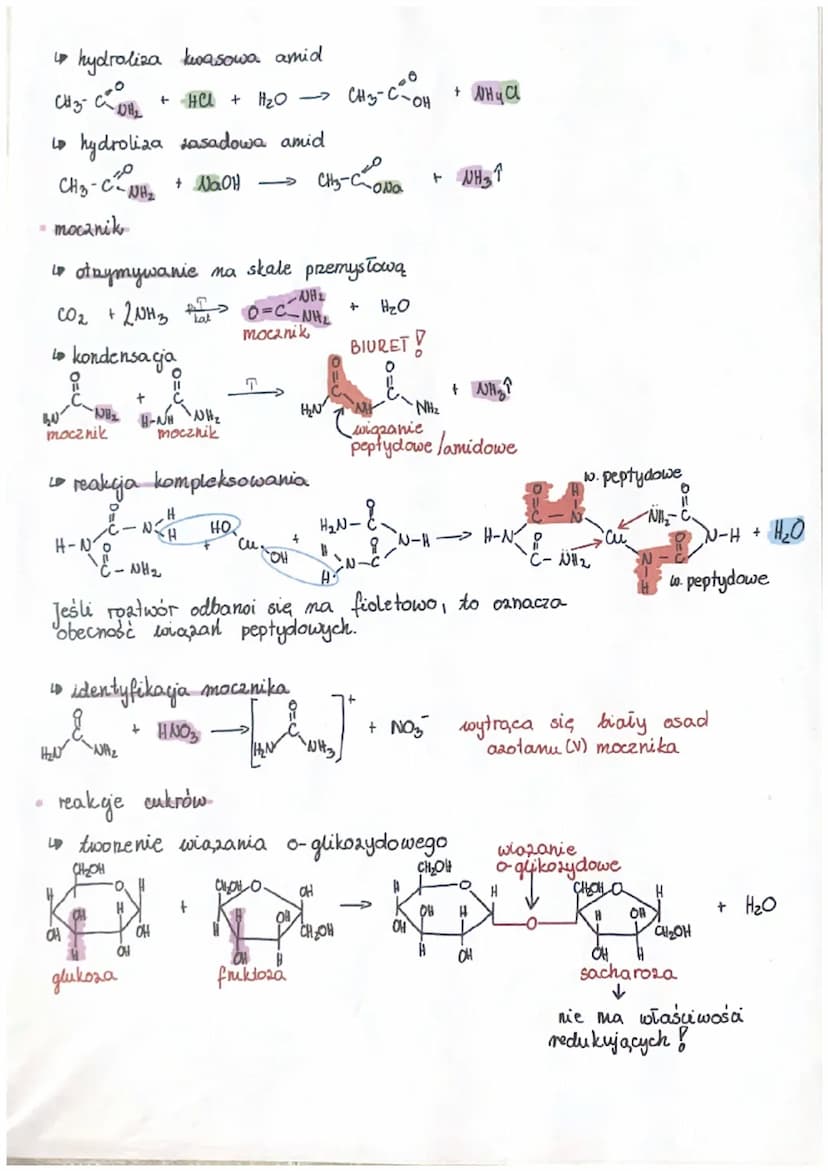 ↳ hydroliza kwasowa amid
CH3-C=O NH2 + HCl + H2O → CH3-C=O OH + NH4Cl
↳ hydroliza zasadowa amid
CH3-C=O NH2 + NaOH → CH3-C=O ONa + NH3↑
• mocznik
↳ otrzymywanie na skale przemysłową
CO2 + 2NH3 T kat → O=C NH2 NH2 + H2O
mocznik
BIURET!
↳ kondensacja
O C H2N NH2 + O C H-NH NH2 T → O C H2N NH O C NH2 + NH3↑
mocznik mocznik
wiązanie
peptydowe/amidowe
↳ reakcja kompleksowania
w. peptydowe
H-N O C - N H H O C - NH2 + HO Cu OH + H2N-C O N-H O N-C H H → H-N O C - N H O C - NH2 Cu NH2-C O N-H N - C O H + H2O
w. peptydowe
Jeśli roztwór odbarwi się na fioletowo, to oznacza
obecność wiązań peptydowych.
↳ identyfikacja mocznika
O C H2N NH2 + HNO3 → [O C H2N NH3]+ + NO3-
wytrąca się biały osad
azotanu (V) mocznika
• reakcje cukrów
↳ tworzenie wiązania o-glikozydowego
wiązanie
o-glikozydowe
CH2OH O H H H OH H OH OH H OH + CH2OH O OH H H OH CH2OH OH H → CH2OH O H H OH H OH H OH O CH2OH O H H OH CH2OH OH H + H2O
glukoza fruktoza sacharoza
↓
nie ma właściwości
redukujących!